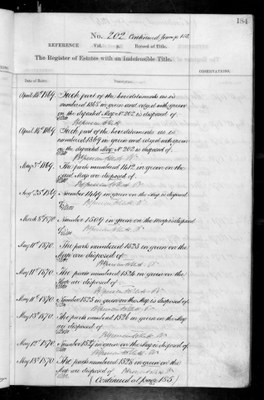 184
No. 202 Continued from p. 112
REFERENCE. Vol. p. Record of Title.
The Register of Estates with an Indefeasible Title.
Date of Entry.
OBSERVATIONS.
April 16th 1869. Such part of the hereditaments as is
numbered 1365 in green and edged with green
on the deposited Map No 202 is disposed of.
April 16th 1869. Such part of the hereditaments as is
numbered 1369 in green and edged with green
on the deposited Map No 202 is disposed of.
May 3rd 1869. The parts numbered 1412 in green on the
said Map are disposed of.
Aug 25th 1869. Number 1449 in green on the map is disposed
of.
March 8th 1870. Number 1509 in green on the map is disposed
of.
May 11th 1870. The parts numbered 1523 in green on the
Map are disposed of.
May 11th 1870. The parts numbered 1524 in green on the
Map are disposed of.
May 11th 1870. Number 1525 in green on the Map is disposed of.
May 12th 1870. The parts numbered 1526 in green on the Map
are disposed of.
May 12th 1870. Number 1527 in green on the map is disposed of.
May 18th 1870. The parts numbered 1528 in green on the
Map are disposed of.
(Continued at page 185)